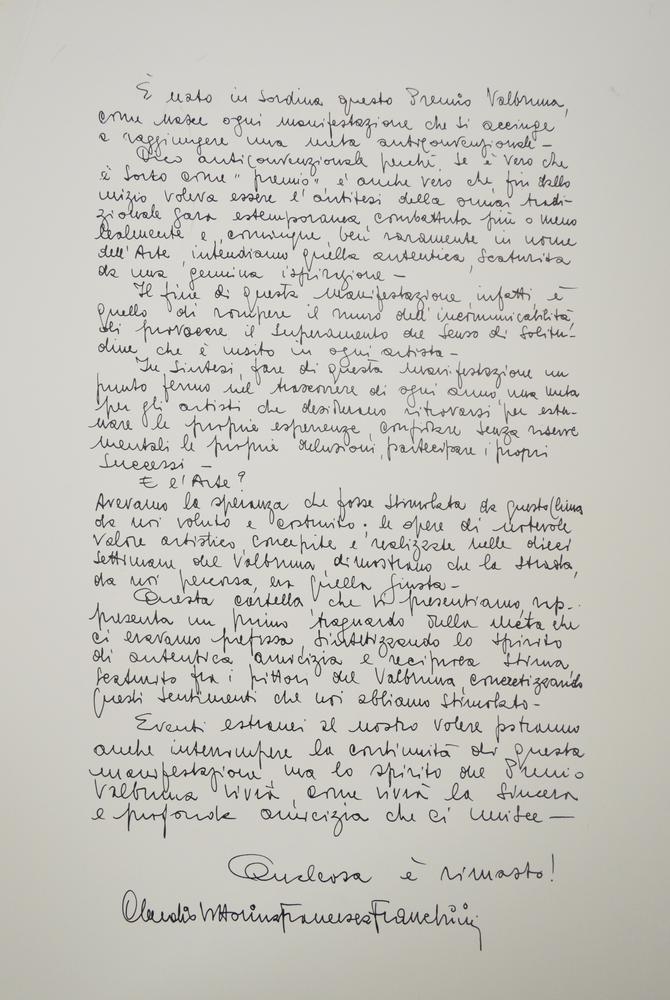 È nato in sordina questo Premio Valbruna,
come nasce ogni manifestazione che si accinge
a raggiungere una meta anticonvenzionale —
Dico anticonvenzionale perché, se è vero che
è sorto come "premio" è anche vero che, fin dallo
inizio, voleva essere l'antitesi della ormai tradi-
zionale gara estemporanea, combattuta più o meno
lealmente e, comunque, ben raramente in nome
dell'Arte, intendiamo quella autentica, scaturita
da una genuina ispirazione —
Il fine di questa manifestazione, infatti, è
quello di rompere il muro dell'incomunicabilità
di provocare il superamento del senso di solitu-
dine che è insito in ogni artista —
In sintesi, fare di questa manifestazione un
punto fermo nel trascorrere di ogni anno, una meta
per gli artisti che desiderano ritrovarsi per ester-
nare le proprie esperienze, confidare senza riserve
mentali le proprie delusioni, partecipare i propri
successi —
E l'Arte?
Avevamo la speranza che fosse stimolata da questo clima
da noi voluto e costruito: le opere di notevole
valore artistico, concepite e realizzate nelle dieci
settimane del Valbruna, dimostrano che la strada,
da noi percorsa, era quella giusta —
Questa cartella, che vi presentiamo, rap-
presenta un primo traguardo della meta che
ci eravamo prefissa, sintetizzando lo spirito
di autentica amicizia e reciproca stima,
scaturito fra i pittori del Valbruna, concretizzando
questi sentimenti che noi abbiamo stimolato —
Eventi estranei al nostro volere potranno
anche interrompere la continuità di questa
manifestazione, ma lo spirito del Premio
Valbruna vivrà, come vivrà la sincera
e profonda amicizia che ci unisce —
Qualcosa è rimasto!
Claudio Vittorino Francesco Franchini